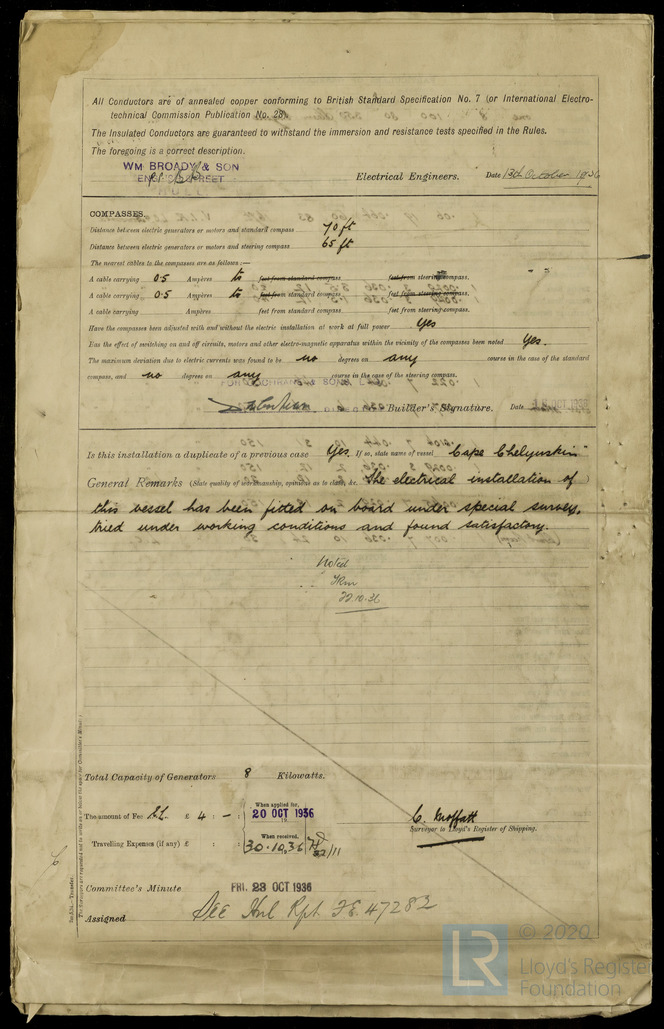 All Conductors are of annealed copper conforming to British Standard Specification No. 7 (or International Electro-
technical Commission Publication No. 28).
The Insulated Conductors are guaranteed to withstand the immersion and resistance tests specified in the Rules.
The foregoing is a correct description.
WM BROADY & SON
Electrical Engineers. Date 13th October 1936
COMPASSES.
Distance between electric generators or motors and standard compass 70 ft
Distance between electric generators or motors and steering compass 65 ft
The nearest cables to the compasses are as follows:—
A cable carrying 0.5 Ampères to feet from standard compass feet from steering compass.
A cable carrying 0.5 Ampères to feet from standard compass feet from steering compass.
A cable carrying Ampères feet from standard compass feet from steering compass.
Have the compasses been adjusted with and without the electric installation at work at full power Yes
Has the effect of switching on and off circuits, motors and other electro-magnetic apparatus within the vicinity of the compasses been noted Yes.
The maximum deviation due to electric currents was found to be no degrees on any course in the case of the standard
compass, and no degrees on any course in the case of the steering compass.
FOR COCHRANE & SONS LD
Builder's Signature. Date
Is this installation a duplicate of a previous case Yes. If so, state name of vessel "Cape Chelyuskin"
General Remarks (State quality of workmanship, opinions as to class, &c. The electrical installation of )
this vessel has been fitted on board under special survey,
tried under working conditions and found satisfactory.
Noted
22.10.36
Total Capacity of Generators 8 Kilowatts.
The amount of Fee £ 4 : - :
When applied for,
20 OCT 1936
Travelling Expenses (if any) £ : :
When received,
30.10.36
C. Moffatt
Surveyor to Lloyd's Register of Shipping.
Committee's Minute FRI. 23 OCT 1936
Assigned See Hul Rpt F.E. 47282
LR
© 2020
Lloyd's Register
Foundation